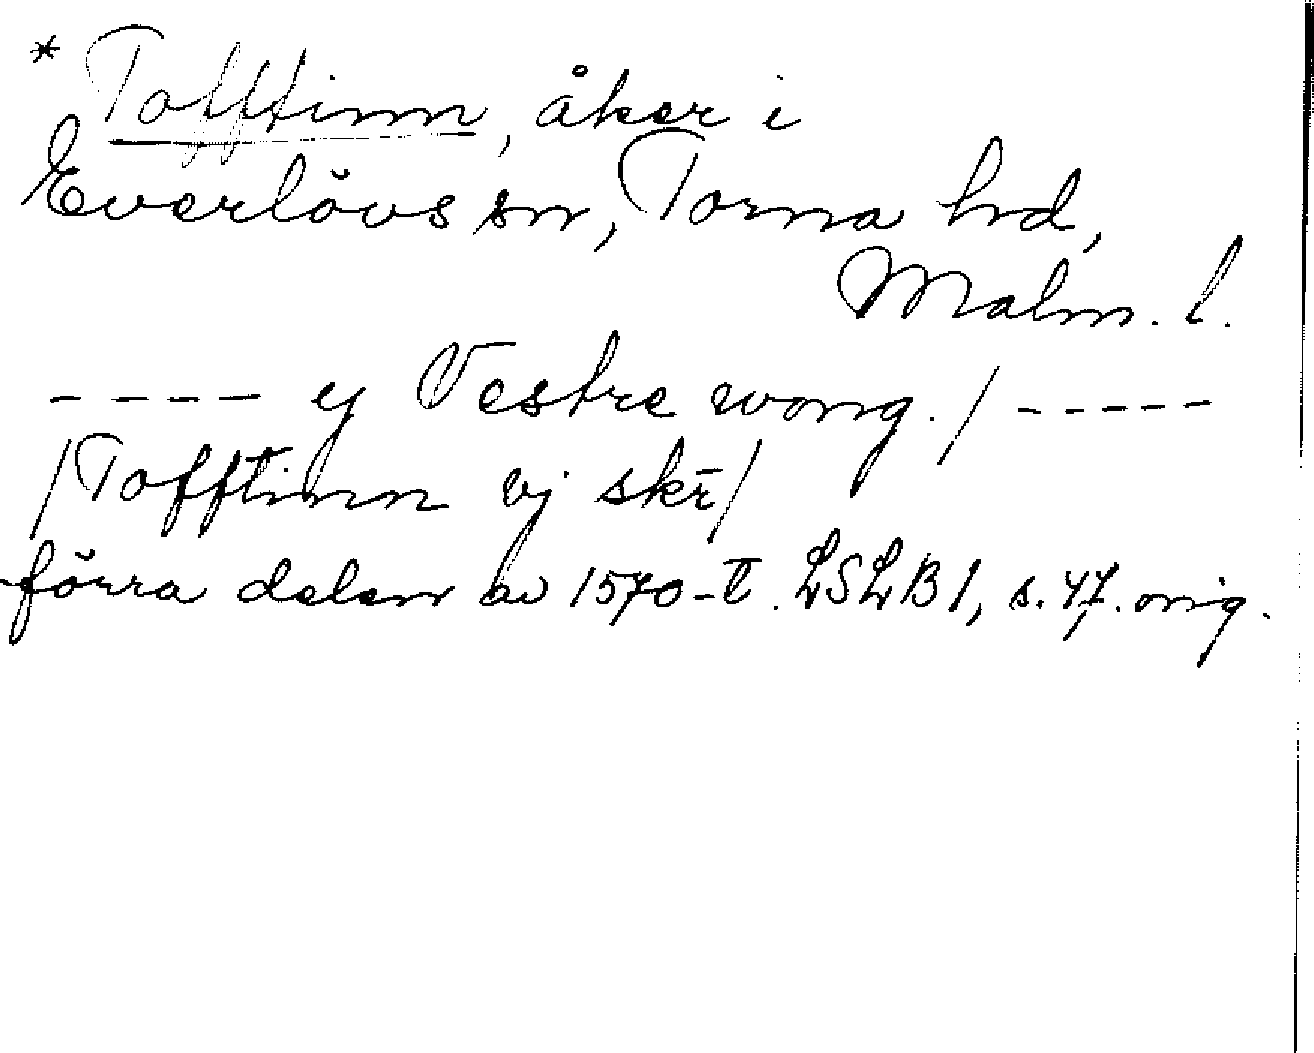 * Tofftinn, åker i
Everlövs sn, Torna hd,
Malm. l.
---- ij Vestre wong. / -----
/Tofftinn vj skē/
förra delen av 1570-t. LSLB 1, s. 47. orig.